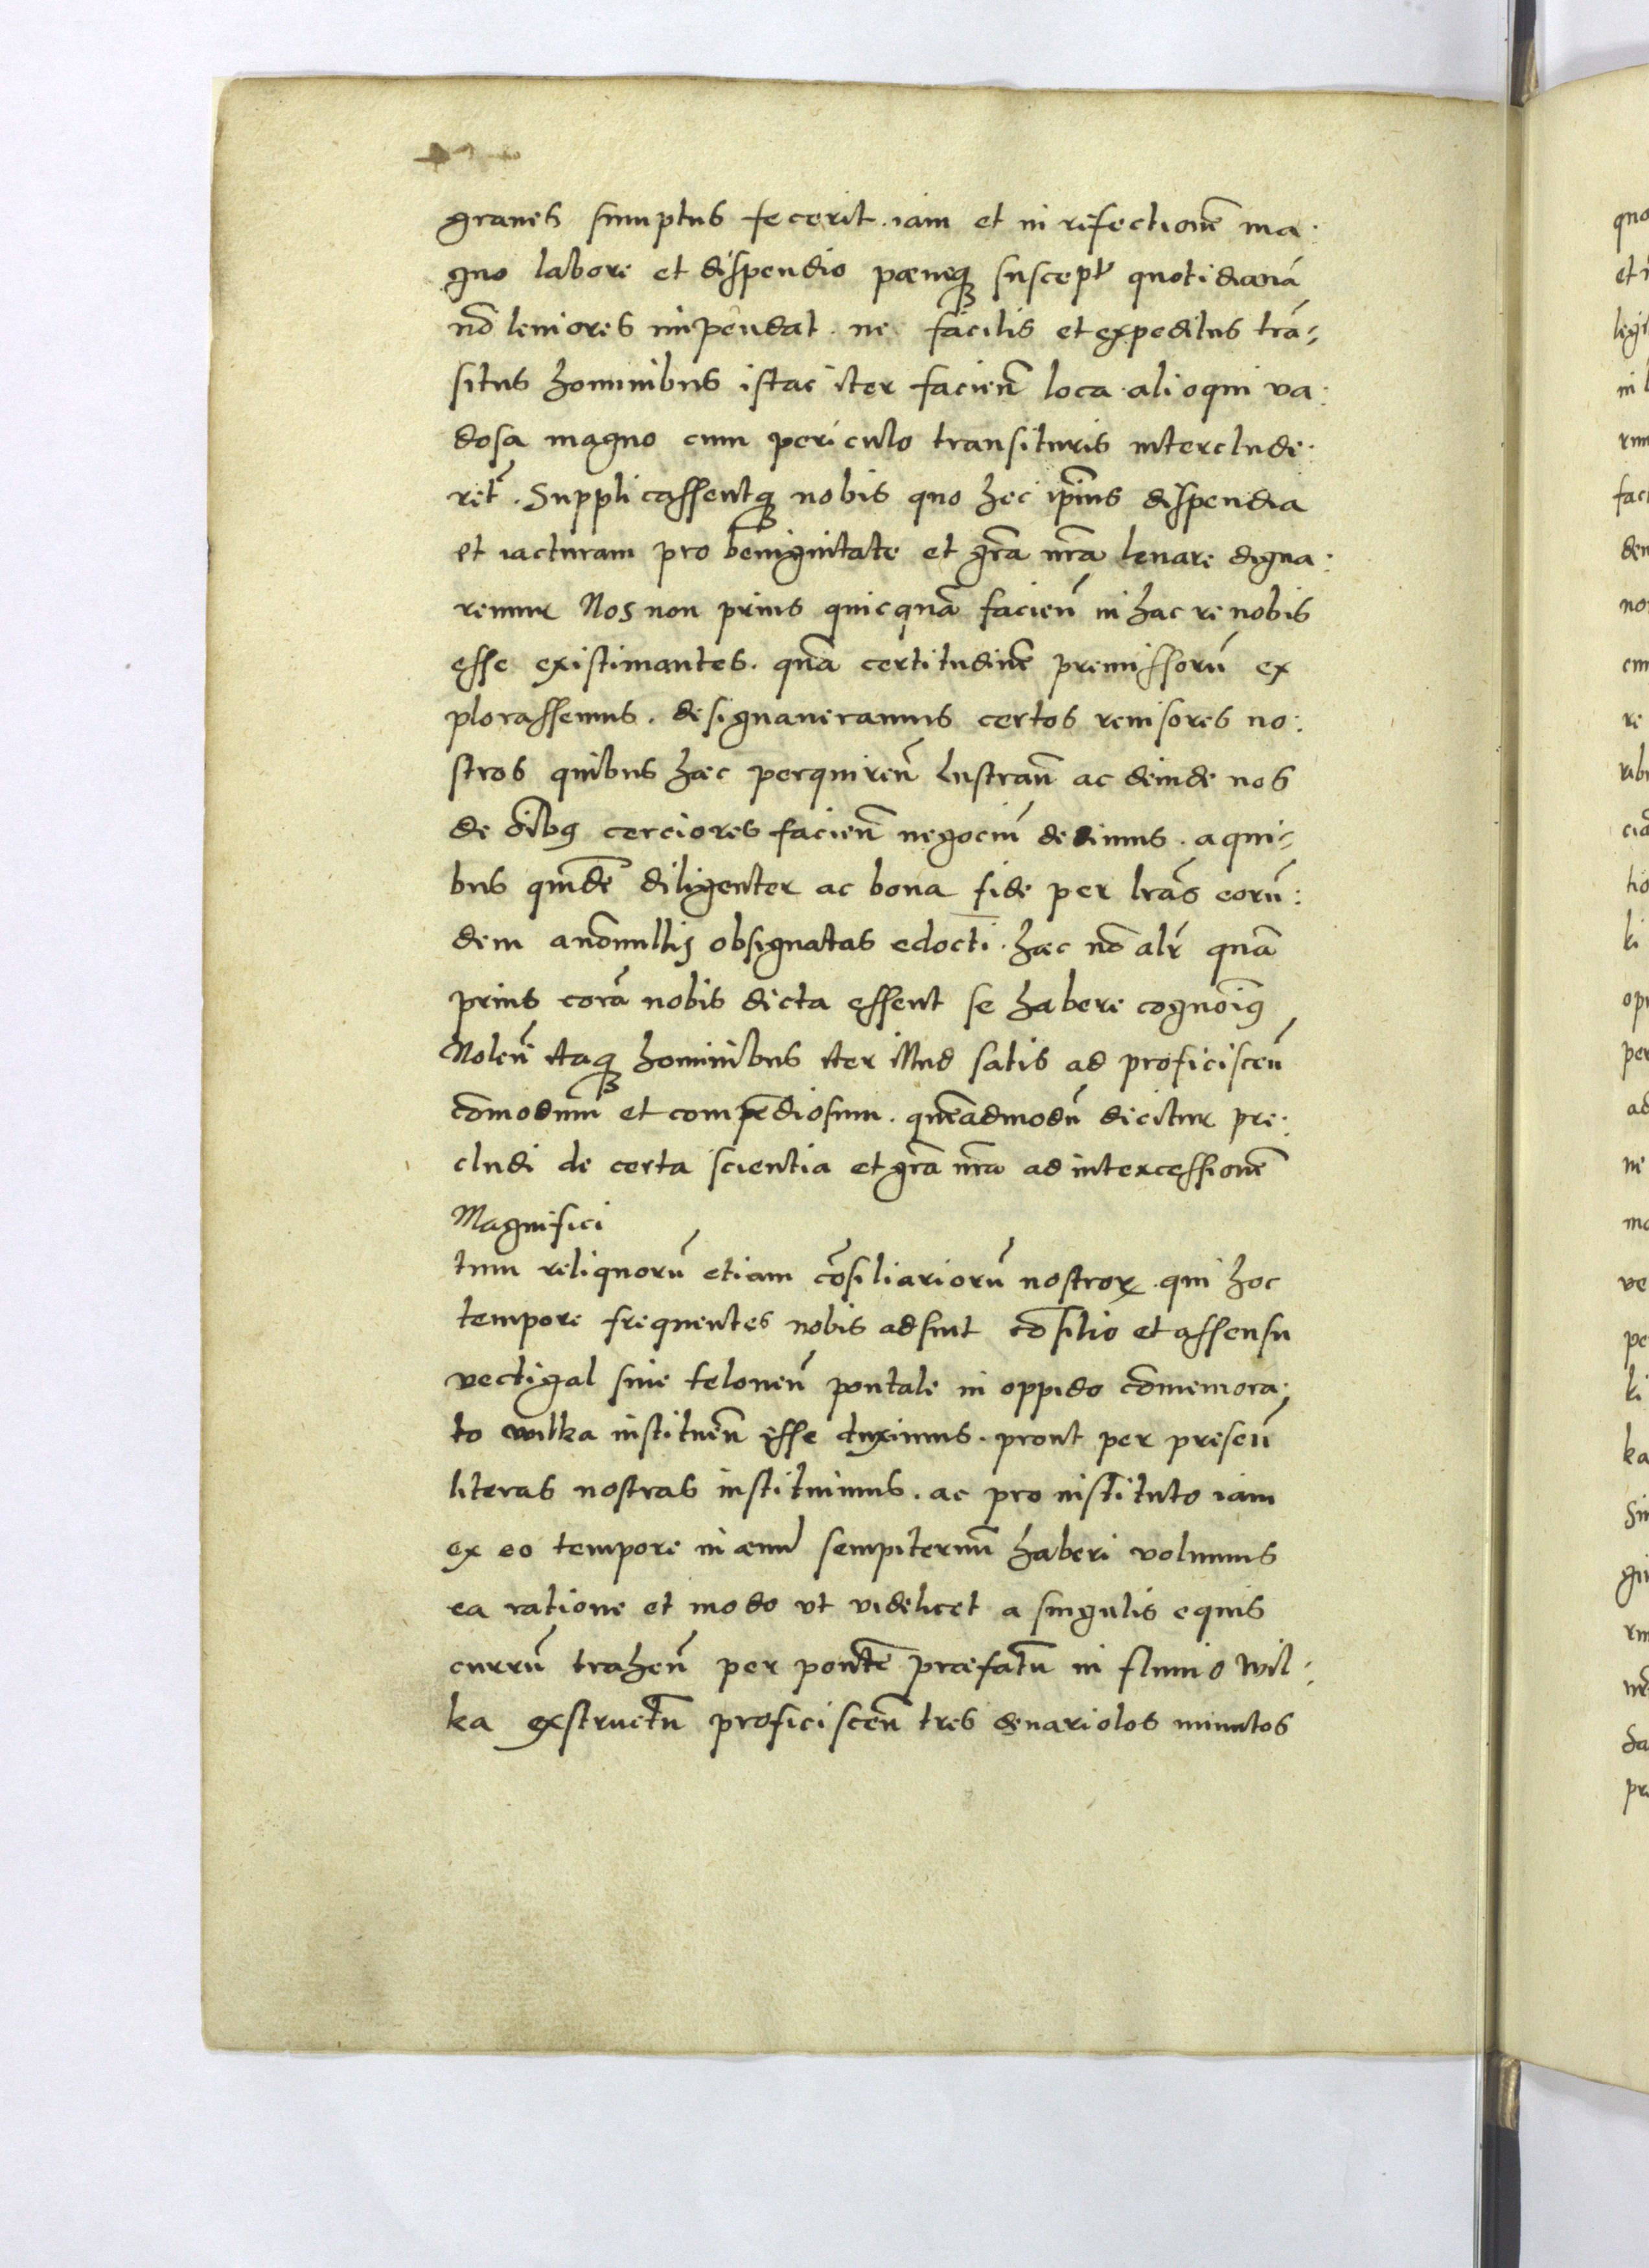 graues sumptus fecerit. iam et in refectionē ma:
gno labore et dispendio pæneq susceptʳ quotidianā
nō leuiores impendat. ne facilis et expeditus trā-
situs hominibus istac iter facieñ loca alioqui va:
dosa magno cum periculo transituris interclude:
ret̃. Supplicassentq nobis quo hec ip̄ius dispendia
et iacturam pro benignitate et gr̄a nr̄a leuare digna:
remur Nos non prius quicquā facieñ in hac re nobis
esse existimantes. quā certitudinē premissorū ex
plorassemus. designaueramus certos reuisores no:
stros quibus hæc perquireñ lustrañ ac deinde nos
de oībꝰ cerciores facieñ negociū dedimus. a qui-
bus quidē diligenter ac bona fide per lr̄as eorū:
dem a nōnullis obsignatas edocti. hæc nō alr̄ quā
prius corā nobis dicta essent se habere cognoīꝰ
Noleñ itaq hominibus iter illud satis ad proficisceñ
cōmodum et compēdiosum. quēadmodū dicitur pre:
cludi de certa scientia et gr̄a nr̄a ad intercessionē
Magnifici
tum reliquorū etiam cōsiliariorū nostroꝝ. qui hoc
tempore frequentes nobis adsint cōsilio et assensu
vectigal siue teloneū pontale in oppido cōmemora:
to wilka institueñ esse duximus. prout per preseñ
literas nostras instituimus. ac pro instituto iam
ex eo tempore in æuū sempiternū haberi volumus
ea ratione et modo vt videlicet a singulis equis
currū traheñ per pontē præfatū in fluuio Wil:
ka exstructū proficisceñ tres denariolos minutos